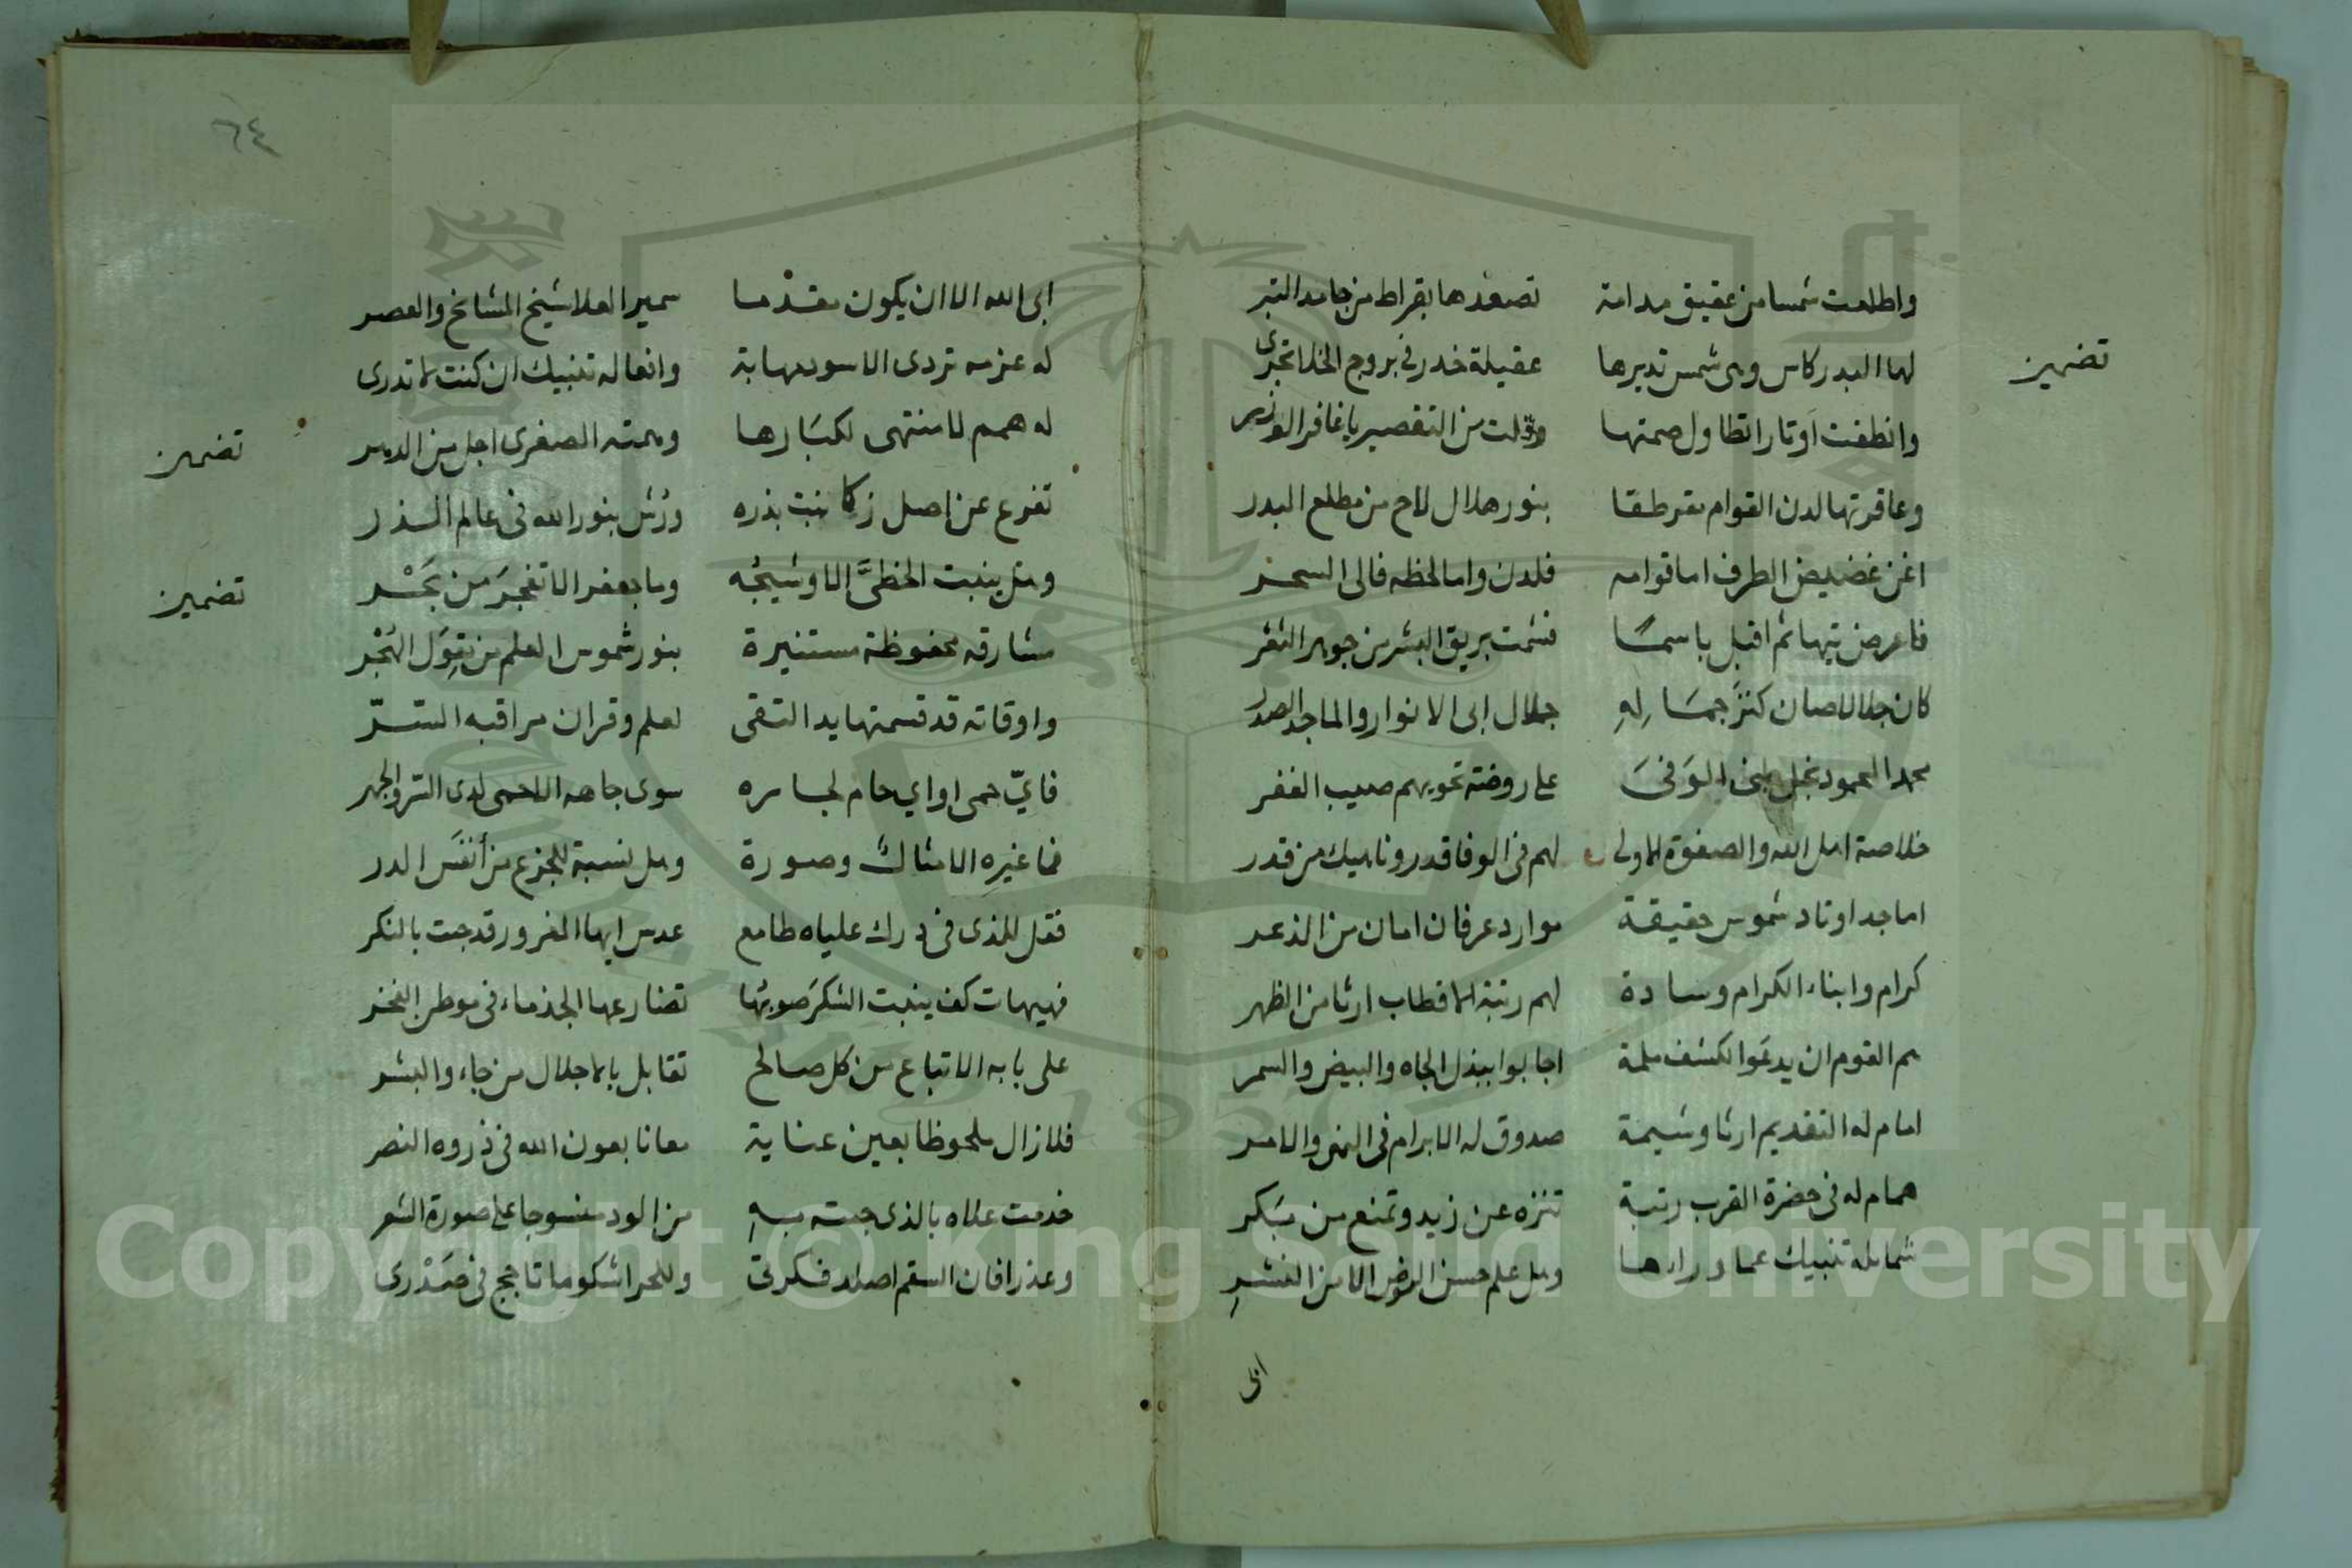 واطلعت شمسا من عقيق مدامة تصعدها بقراط من جامد التبر
تضمين
لها البدر كاس وهى شمس تديرها عقيلة خدر فى بروج الخلا تجرى
وانطقت اوتارا تطاول صمتها وقلت من التقصير يا غافر الوزر
وعاقرتها لدن القوام مقرطقا بنور هلال لاح من مطلع البدر
اغن غضيض الطرف اما قوامه فلدن واما لحظه فالى السحر
فاعرض تيها ثم اقبل باسما فشمت بريق البشر من جوهر الثغر
كان جلالا صان كنز جماله جلال ابى الانوار والماجد الصدر
محمد المحمود نجل بنى الوفى على روضة تحويهم صيب الغفر
خلاصة اهل الله والصفوة الاولى لهم فى الوفا قدر وناهيك من قدر
اماجد اوتاد شموس حقيقة موارد عرفان امان من الذعر
كرام وابناء الكرام وسادة لهم رتبة الاقطاب ارثا من الظهر
هم القوم ان يدعوا لكشف ملمة اجابوا ببذل الجاه والبيض والسمر
امام له التقديم ارثا وشيمة صدوق له الابرام فى النهى والامر
همام له فى حضرة القرب رتبة تنزه عن زيد وتمنع من بكر
شمايله تنبيك عما وراءها وهل علم حسن الروض الا من النشر
ابى
٦٤
ابى الله الا ان يكون مقدما سمير العلا شيخ المشايخ والعصر
له عزمه تردى الاسود مهابة وافعاله تنبيك ان كنت لا تدرى
تضمين
له همم لا منتهى لكبارها وهمته الصغرى اجل من الدهر
تفرع عن اصل زكا نبت بذره ورش بنور الله فى عالم الذر
تضمين
وهل ينبت الخطى الا وشيجه وما جعفر الا تفجر من بحر
مشارقه محفوظة مستنيرة بنور شموس العلم من تقول الهجر
واوقاته قد قسمتها يد التقى لعلم وقران مراقبه السر
فاى حمى او اى حام لجاره سوى جاهه الاحمى لدى السر والجهر
فما غيره الا مثال وصورة وهل نسبة للجزع من أنفس الدر
فقل للذى فى درك علياه طامع عدس ايها المغرور قد جئت بالنكر
فهيهات كف ينبت الشكر صوبها تضارعها الجذماء فى موطن الفخر
على بابه الاتباع من كل صالح تقابل بالاجلال من جاء والبشر
فلا زال ملحوظا بعين عناية معانا بعون الله فى ذروه النصر
خدمت علاه بالذى جئت به من الود منسوجا على صورة الشعر
وعذرا فان السقم اصدا فكرتى وللحر اشكو ما تاجج فى صدرى
Copyright © King Saud University
1957